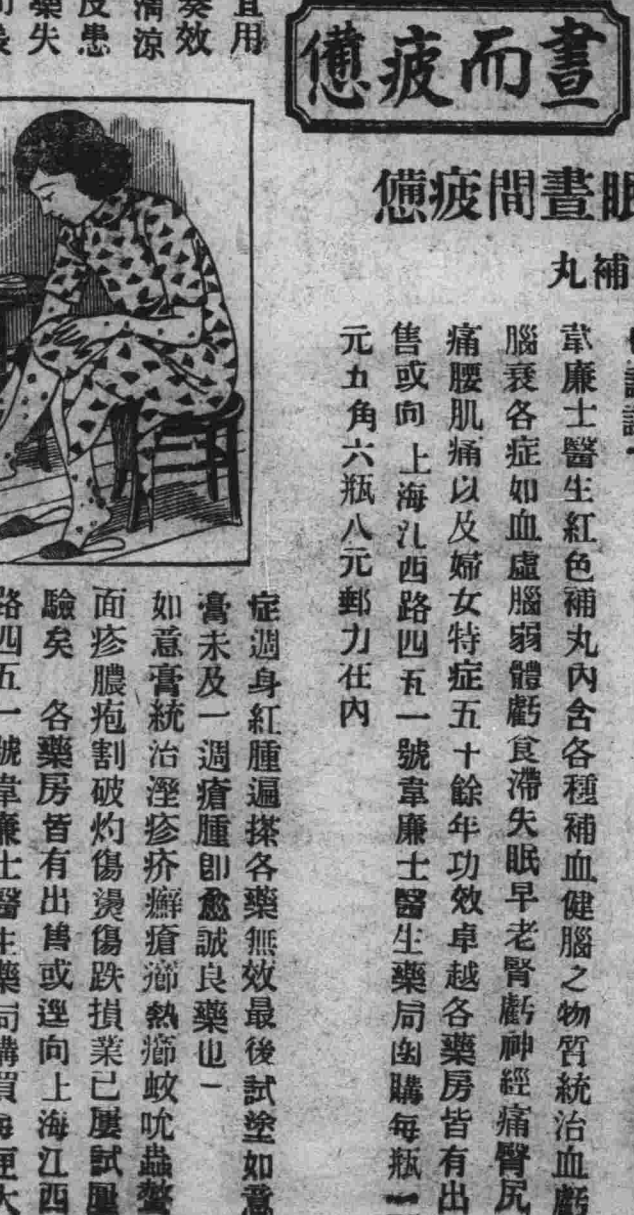 晝而疲憊
眠晝間疲憊
補丸
韋廉士醫生紅色補丸內含各種補血健腦之物質統治血虧
腦衰各症如血虛腦弱體虧食滯失眠早老腎虧神經痛臀尻
痛腰肌痛以及婦女特症五十餘年功效卓越各藥房皆有出
售或向上海江西路四五一號韋廉士醫生藥局函購每瓶一
元五角六瓶八元郵力在內
宜用
奏效
清涼
反患
藥失
症週身紅腫遍搽各藥無效最後試塗如意
膏未及一週瘡腫卽愈誠良藥也
如意膏統治溼疹疥癬瘡癤熱癤蚊吮蟲螫
面疹膿疱割破灼傷燙傷跌損業已屢試屢
驗矣 各藥房皆有出售或逕向上海江西
路四五一號韋廉士醫生藥局購買每匣大